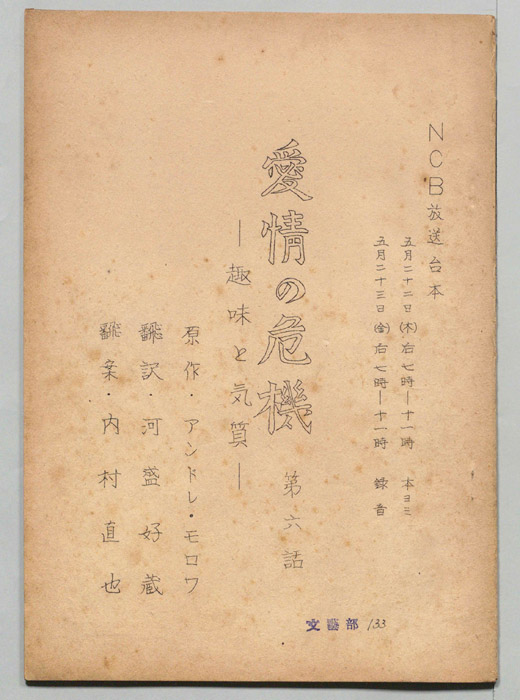 NCB放送台本
五月二十二日(木)右七時—十一時 本ヨミ
五月二十三日(金)右七時—十一時 録音
愛情の危機 第六話
—趣味と気質—
原作・アンドレ・モロワ
飜訳・河盛好蔵
飜案・内村直也
文藝部 133